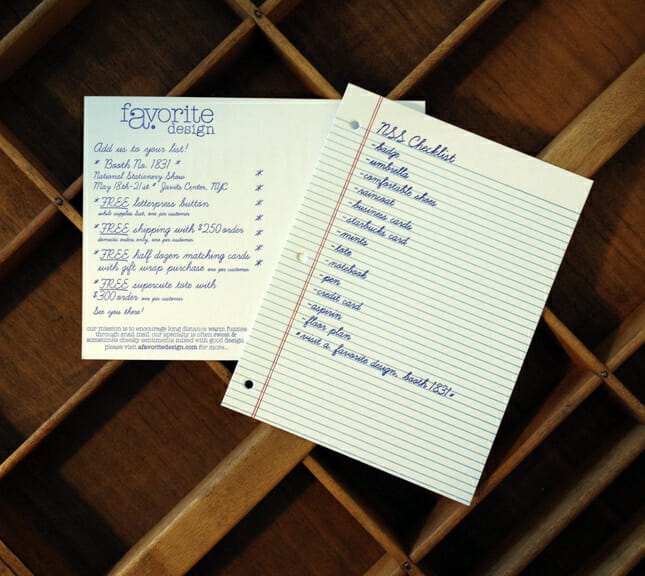 a. favorite
design
Add us to your list!
* Booth No. 1831 *
National Stationery Show
May 18th-21st * Javits Center, NYC
* FREE letterpress button
while supplies last, one per customer
* FREE shipping with $250 order
domestic orders only, one per customer
* FREE half dozen matching cards
with gift wrap purchase one per customer
* FREE supercute tote with
$300 order one per customer
See you there!
our mission is to encourage long distance warm fuzzies
through snail mail. our specialty is often sweet &
sometimes cheeky sentiments mixed with good design.
please visit afavoritedesign.com for more..
NSS Checklist
-badge
-umbrella
-comfortable shoes
-raincoat
-business cards
-starbucks card
-mints
-tote
-notebook
-pen
-credit card
-aspirin
-floor plan
*visit a. favorite design, booth 1831*